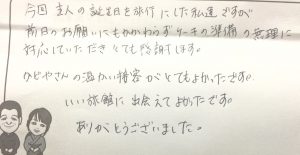 今回 主人の誕生日を旅行にした私達ですが
前日のお願いにもかかわらずケーキの準備の無理に
対応していただきとても感謝します。
ひどやさんの温かい接客がとてもよかったです。
いい旅館に出会えてよかったです。
ありがとうございました。